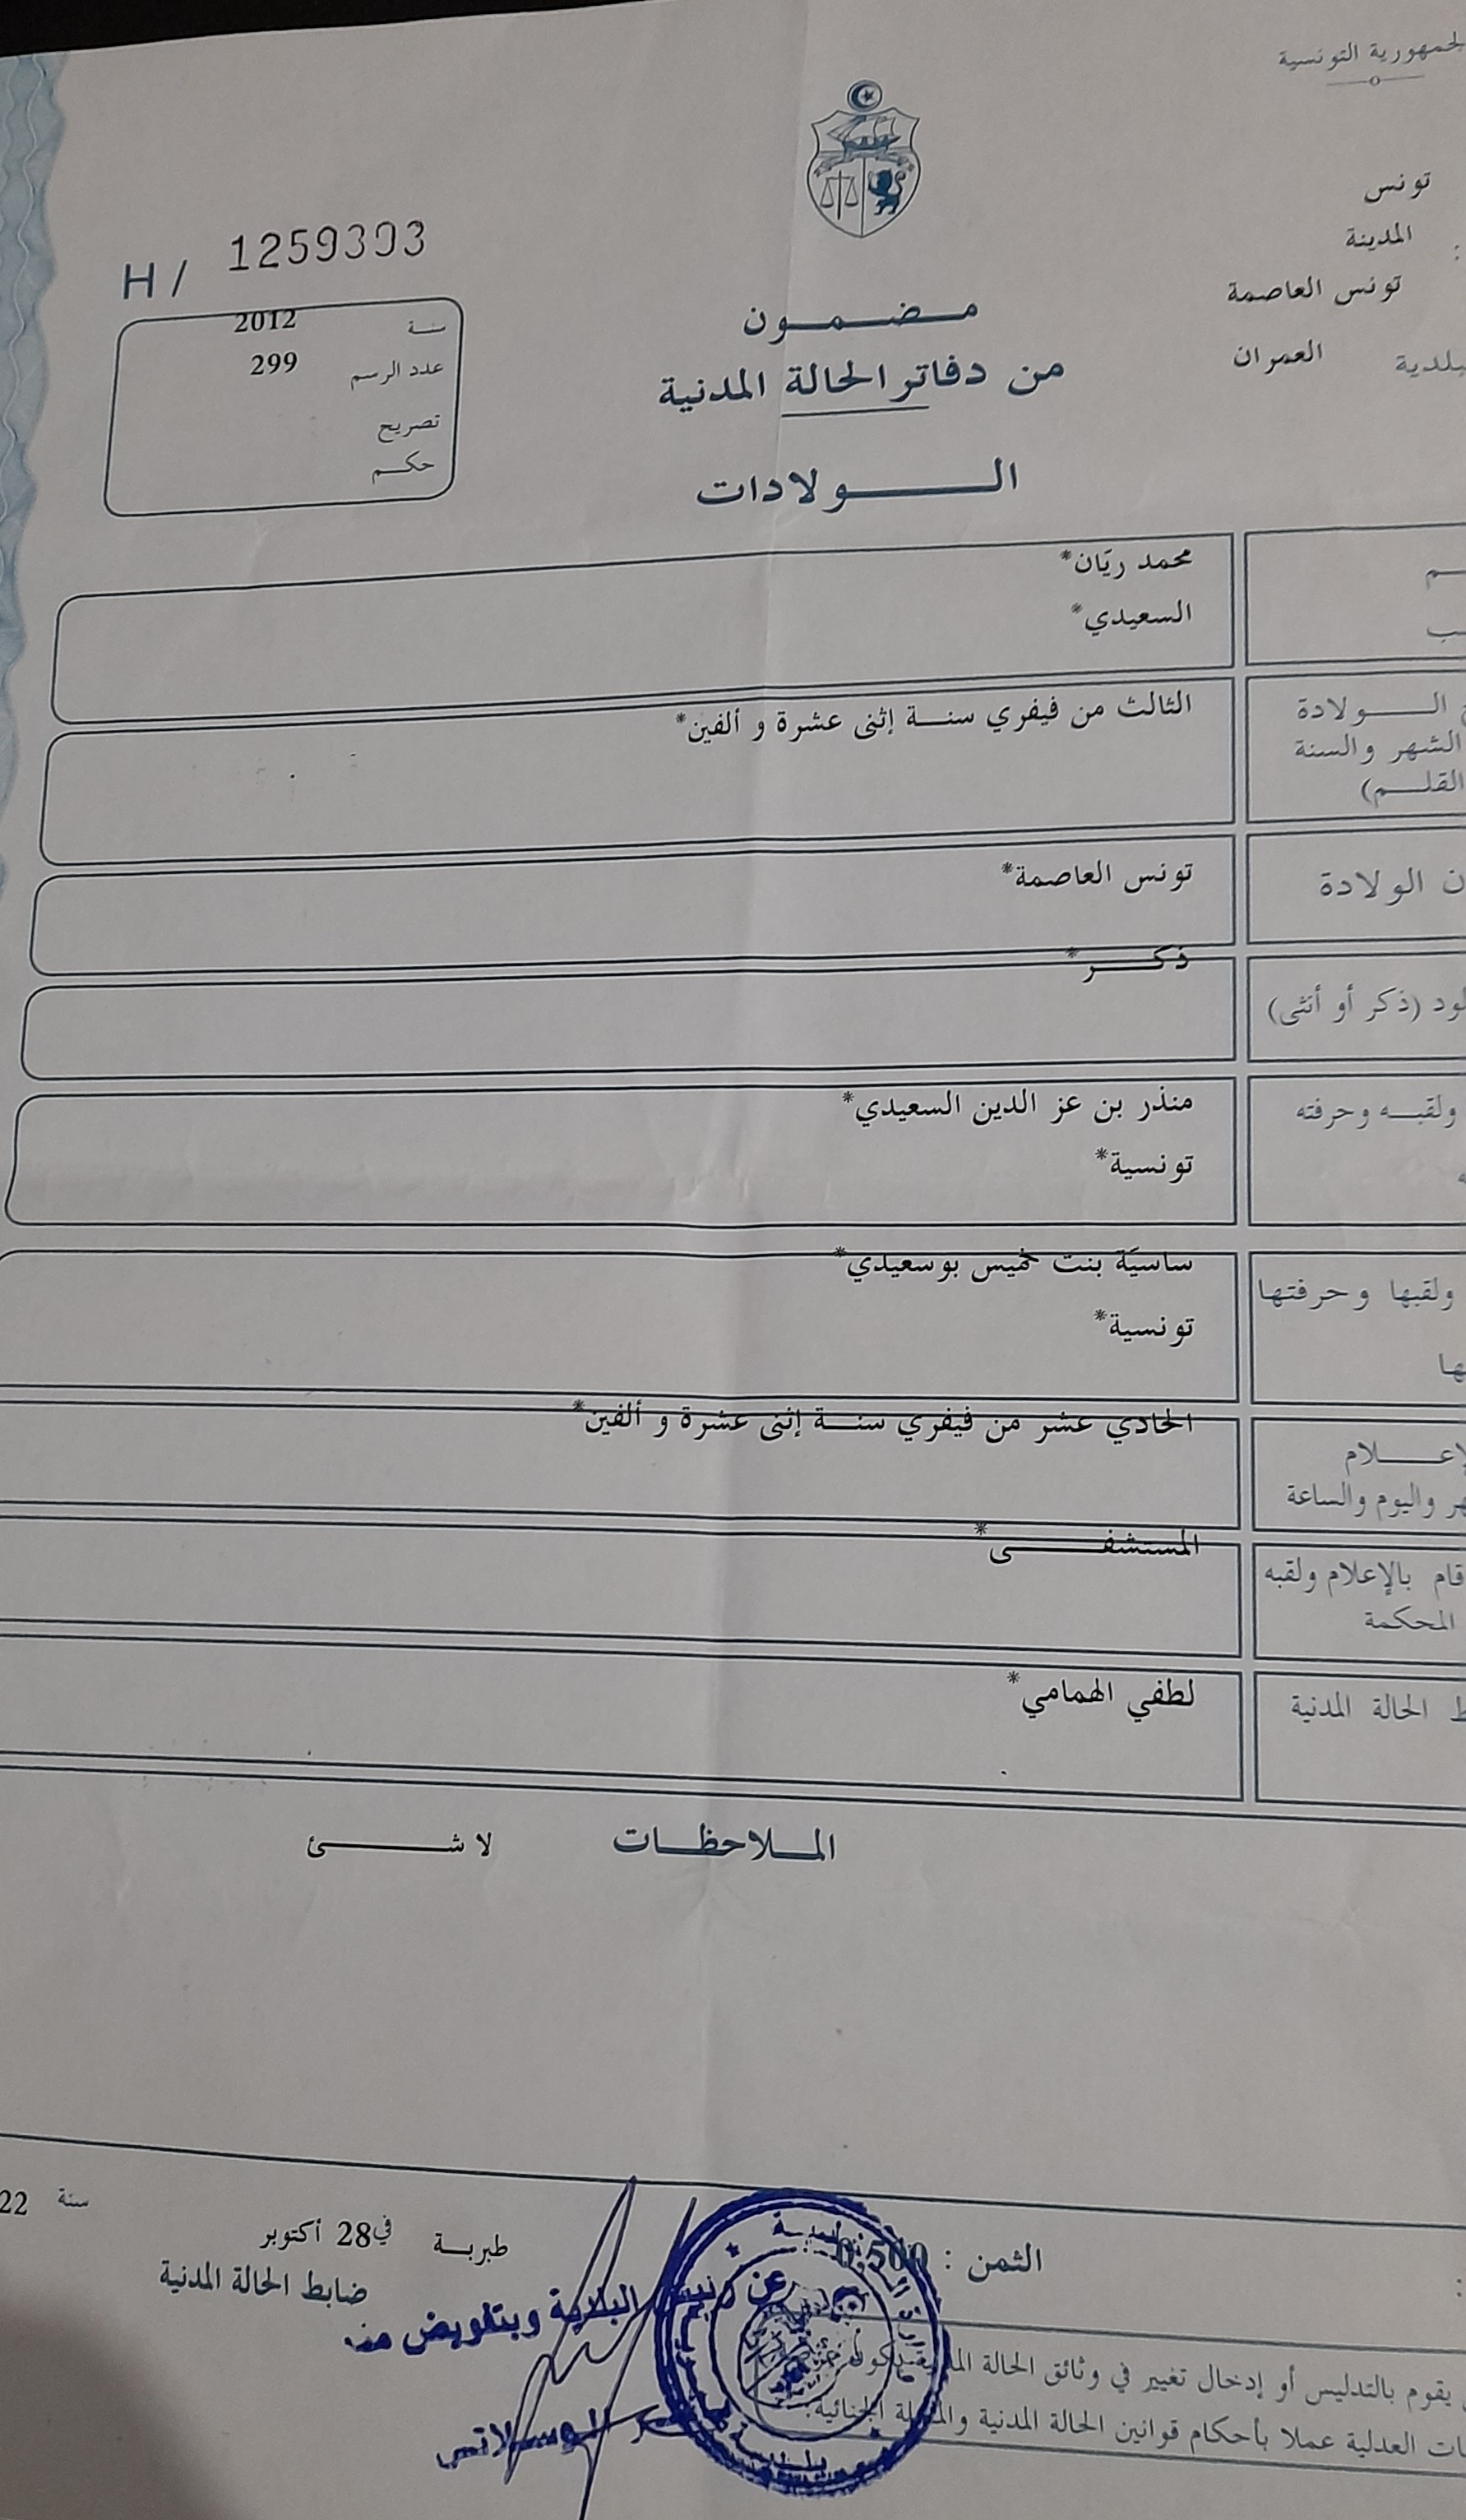 الجمهورية التونسية
تونس
المدينة
تونس العاصمة
العمران
H / 1259303
سنة 2012
عدد الرسم 299
تصريح
حكم
مضمون
من دفاتر الحالة المدنية
الولادات
محمد ريّان*
السعيدي*
الولادة
الشهر والسنة
القلم)
الثالث من فيفري سنة إثنى عشرة و ألفين*
الولادة
تونس العاصمة*
(ذكر أو أنثى)
ذكر*
ولقبه وحرفته
منذر بن عز الدين السعيدي*
تونسية*
ولقبها وحرفتها
ساسيّة بنت خميس بوسعيدي*
تونسية*
واليوم والساعة
الحادي عشر من فيفري سنة إثنى عشرة و ألفين*
قام بالإعلام ولقبه
المحكمة
المستشفى*
الحالة المدنية
لطفي الهمامي*
الملاحظات لا شئ
طبربة في 28 أكتوبر سنة 22
ضابط الحالة المدنية
الثمن : 0.500
عن رئيس البلدية وبتفويض منه
يقوم بالتدليس أو إدخال تغيير في وثائق الحالة
العدلية عملا بأحكام قوانين الحالة المدنية والمجلة الجنائية.